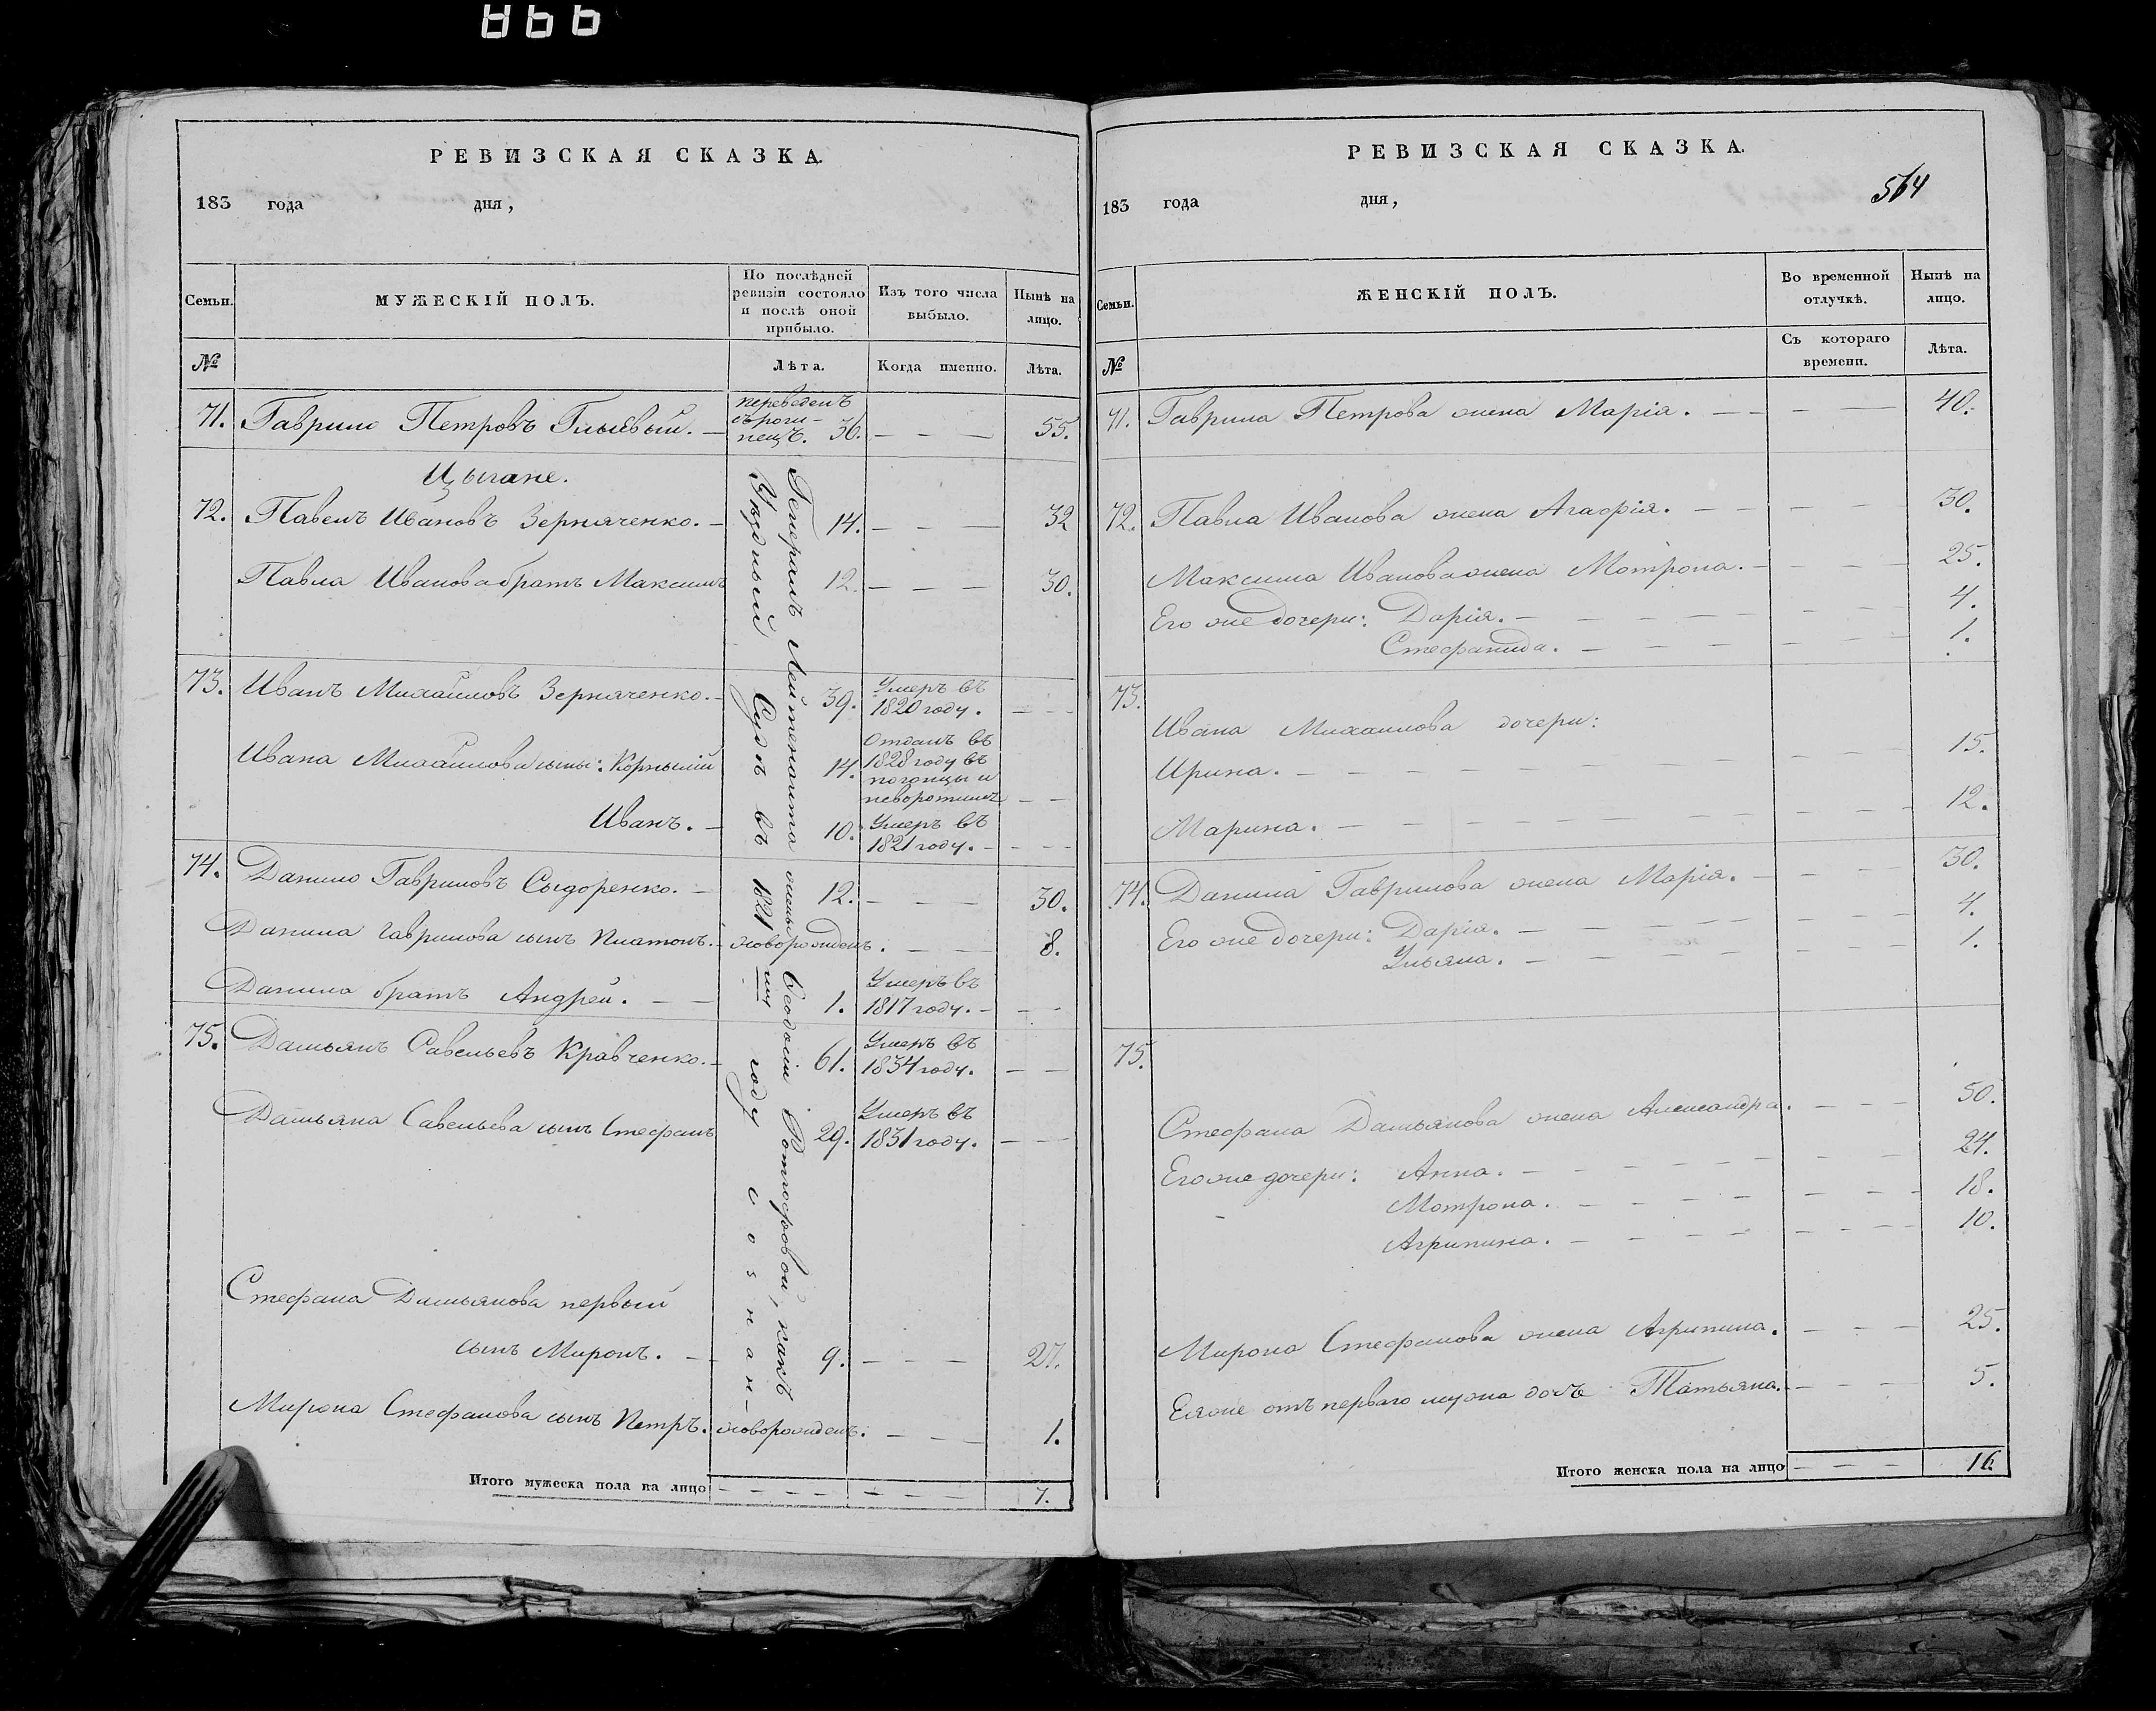 РЕВИЗСКАЯ СКАЗКА.
183 года дня,
Семьи. МУЖЕСКІЙ ПОЛЪ. По послѣдней ревизіи состояло и послѣ оной прибыло. Изъ того числа выбыло. Нынѣ на лицо.
№ Лѣта. Когда именно. Лѣта.
71. Гаврило Петровъ переведенъ 36. — — — 55.
Цыгане.
72. Павелъ Ивановъ Зерняченко. — 14. — — — 32
Павла Иванова братъ Максимъ 12. — — — 30.
73. Иванъ Михайловъ Зерняченко. — 39. Умеръ въ 1820 году. — — —
Ивана Михайлова сыны: Корнылій 14. Отданъ въ 1828 году въ погонцы и неворотился — —
Иванъ. — 10. Умеръ въ 1821 году. — — — —
74. Данило Гавриловъ Сыдоренко. — 12. — — — 30.
Данила Гаврилова сынъ Платонъ. — новорожденъ. — — — 8.
Данила братъ Андрей. — — 1. Умеръ въ 1817 году. — — —
75. Дамьянъ Савельевъ Кравченко. — 61. Умеръ въ 1834 году. — —
Дамьяна Савельева сынъ Стефанъ 29. Умеръ въ 1831 году. — —
Стефана Дамьянова первый
сынъ Миронъ. — — 9. — — — 27.
Мирона Стефанова сынъ Петръ. новорожденъ. — — — 1.
Генералъ Лейтенанта жены Феодосіи Ротгофовой, какъ
Уѣздный Судъ въ 1821 году
Итого мужеска пола на лицо — — — — — — — 7.
РЕВИЗСКАЯ СКАЗКА.
564
183 года дня,
Семьи. ЖЕНСКІЙ ПОЛЪ. Во временной отлучкѣ. Нынѣ на лицо.
№ Съ котораго времени. Лѣта.
71. Гаврила Петрова жена Марія. — — — — 40.
72. Павла Иванова жена Агафія. — — — — 30.
Максима Иванова жена Мотрона. — — — — 25.
Его же дочери: Дарія. — — — — 4.
Стефанида. — — — — 1.
73.
Ивана Михаилова дочери:
Ирина. — — — — 15.
Марина. — — — — 12.
74. Данила Гаврилова жена Марія. — — — — 30.
Его же дочери: Дарія. — — — — 4.
Ульяна. — — — — 1.
75.
Стефана Дамьянова жена Александра. — — — 50.
Его же дочери: Анна. — — — — 24.
Мотрона. — — — — 18.
Агрипина. — — — — 10.
Мирона Стефанова жена Агрипина. — — — 25.
Ея же отъ перваго мужа дочь Татьяна. — — — 5.
Итого женска пола на лицо — — — 16.